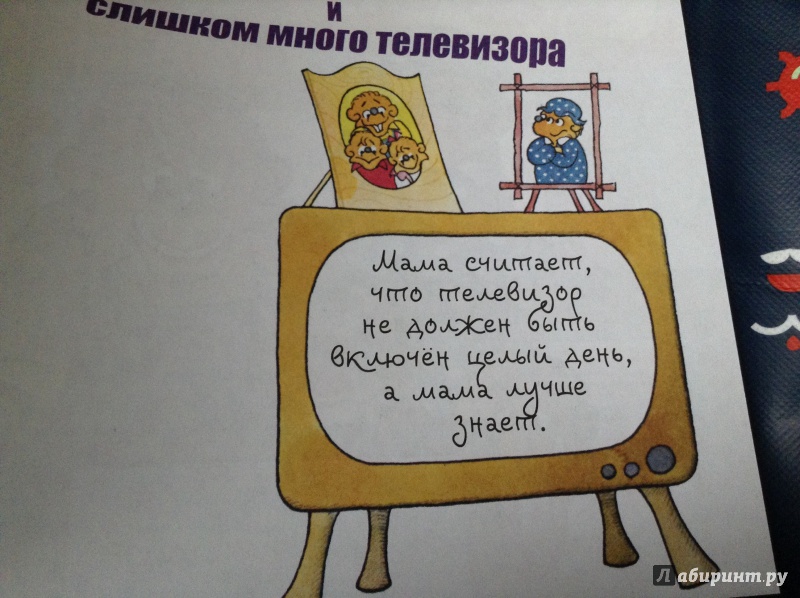 и
слишком много телевизора
Мама считает,
что телевизор
не должен быть
включён целый день,
а мама лучше
знает.
Лабиринт.ру